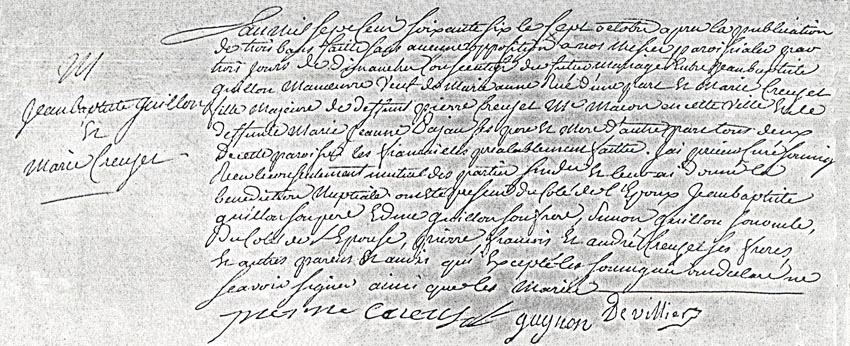 M
Jean baptiste Guillon
Et
Marie Creuzet
L'an mil sept cent soixante six le sept octobre apres la publication
de trois bans faitte sans aucune opposition a nos Messes paroissiales par
trois jours de dimanche consecutifs du futur Mariage Entre Jean baptiste
Guillon Manoeuvre Veuf de Marie anne d'une part Et Marie Creuzet
fille Majeure de deffunt pierre Creuzet Me Macon en cette Ville Et de
deffunte Marie Jeanne Dajou ses pere Et Mere d'autre part tous deux
De cette paroisse les fiancailles prealablement faittes. J'ai prieur curé soussigné
Recu le consentement mutuel des parties Et leur ai donné la
benediction Nuptiale ont Eté presens du coté de l'Epoux Jean baptiste
Guillon son pere Edme Guillon son frere, Simon Guillon son oncle,
Du coté de l'Epouse, pierre, francois Et andré Creuzet ses freres,
Et autres parens Et amis qui Excepté les soussignés ont declaré ne
scavoir signer ainsi que les Mariés
pierre Creuzet guignon Devilliers